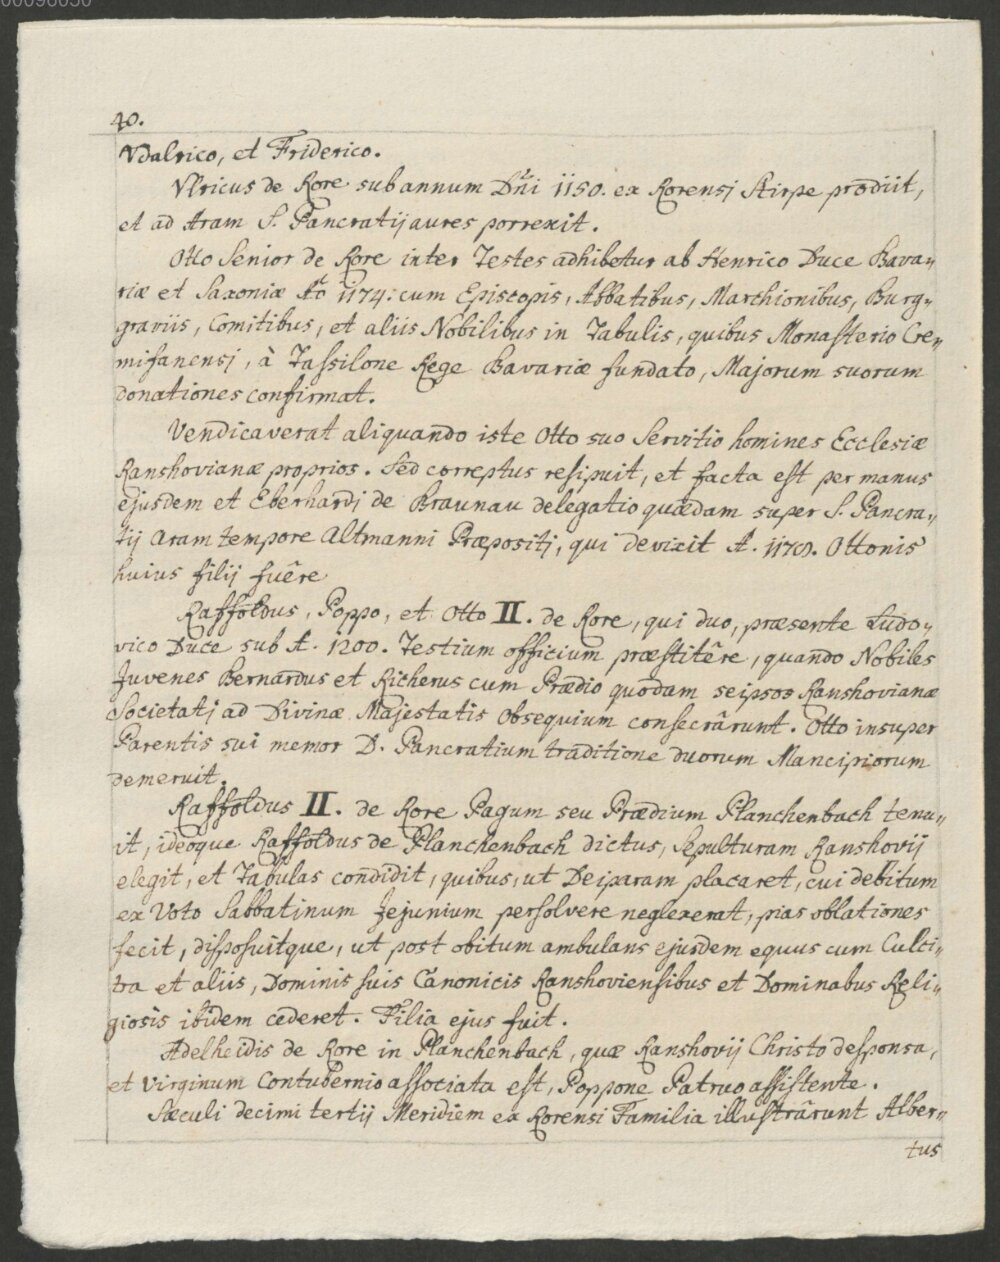 00090050
40.
Vdalrico, et Friderico.
Vlricus de Rore sub annum Dn̄i 1150. ex Rorensi Stirpe prodiit,
et ad Aram S. Pancratij aures porrexit.
Otto Senior de Rore inter Testes adhibetur ab Henrico Duce Bava„
riæ et Saxoniæ Aō 1174: cum Episcopis, Abbatibus, Marchionibus, Burg„
graviis, Comitibus, et aliis Nobilibus in Tabulis, quibus Monasterio Cre„
mifanensj, à Tassilone Rege Bavariæ fundato, Majorum suorum
donationes confirmat.
Vendicaverat aliquando iste Otto suo Servitio homines Ecclesiæ
Ranshovianæ proprios. Sed correptus resipuit, et facta est per manus
ejusdem et Eberhardj de Braunau delegatio quædam super S. Pancra„
tij Aram tempore Altmanni Præpositj, qui devixit A. Ottonis
huius filij fuêre
Raffoldus, Poppo, et Otto II. de Rore, qui duo, præsente Ludo„
vico Duce sub A. 1200. Testium officium præstitêre, quando Nobiles
Juvenes Bernardus et Richerus cum Prædio quodam seipsos Ranshovianæ
Societatj ad Divinæ Majestatis Obsequium consecrârunt. Otto insuper
Parentis sui memor D. Pancratium traditione duorum Mancipiorum
demeruit.
Raffoldus II. de Rore Pagum seu Prædium Planchenbach tenu„
it, ideoque Raffoldus de Planchenbach dictus, Sepulturam Ranshovij
elegit, et Tabulas condidit, quibus, ut Deiparam placaret, cui debitum
ex Voto Sabbatinum Jejunium persolvere neglexerat, pias oblationes
fecit, disposuitque, ut post obitum ambulans ejusdem equus cum Culci„
tra et aliis, Dominis suis Canonicis Ranshoviensibus et Dominabus Reli„
giosis ibidem cederet. Filia ejus fuit.
Adelheidis de Rore in Planchenbach, quæ Ranshovij Christo desponsa,
et Virginum Contubernio associata est, Poppone Patruo assistente.
Sæculi decimi tertij Meridiem ex Rorensi Familia illustrârunt Alber„
tus